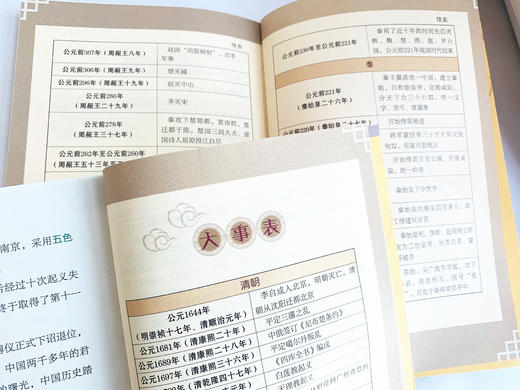 续表
公元前307年（周赧王八年）
赵国“胡服骑射”，改革
军事
公元前306年（周赧王九年）
楚灭越
公元前296年（周赧王十九年）
赵灭中山
公元前286
（周赧王二十九年）
齐灭宋
公元前278
（周赧王三十七年）
秦攻下楚郢都，置南郡。楚
迁都于陈。楚国三闾大夫、爱
国诗人屈原投江自尽
公元前262至公元前260年
（周赧王五十三年至
续表
公元前230年至公元前221年
秦用了近十年的时间先后灭
韩、魏、楚、燕、赵、齐六
国，公元前221年战国时代结束
秦
公元前221年
（秦始皇二十六年）
秦王嬴政统一中国，建立秦
朝，自称始皇帝，定都咸阳。
分天下为三十六郡，统一文
字、货币、度量衡
公元前220年（秦始皇二十七年）
开始修筑驰道
将军蒙恬率三十万大军北伐
匈奴，收复河套地区
开始修筑万里长城，开凿灵
渠，统一岭南
秦始皇下令焚书
大事表
清朝
公元1644年
（明崇祯十七年、清顺治元年）
李自成入北京，明朝灭亡。清
朝从沈阳迁都北京
公元1681年（清康熙二十年）
平定三藩之乱
公元1689年（清康熙二十八年）
中俄签订《尼布楚条约》
公元1697年（清康熙三十六年）
平定噶尔丹叛乱
（清乾隆四十七年）
《四库全书》编成
白莲教起义
天理教起义
南京，采用五色
后经过十次起义失
终于取得了第十一
仪正式下诏退位，
中国两千多年的君
的曙光，中国历史踏